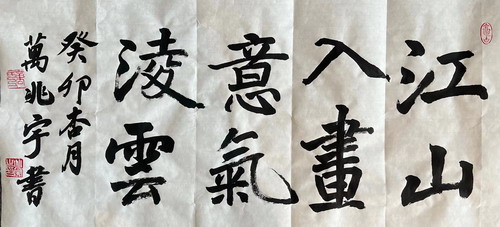 江山
入畫
意氣
淩雲
癸卯杏月
萬兆宇書